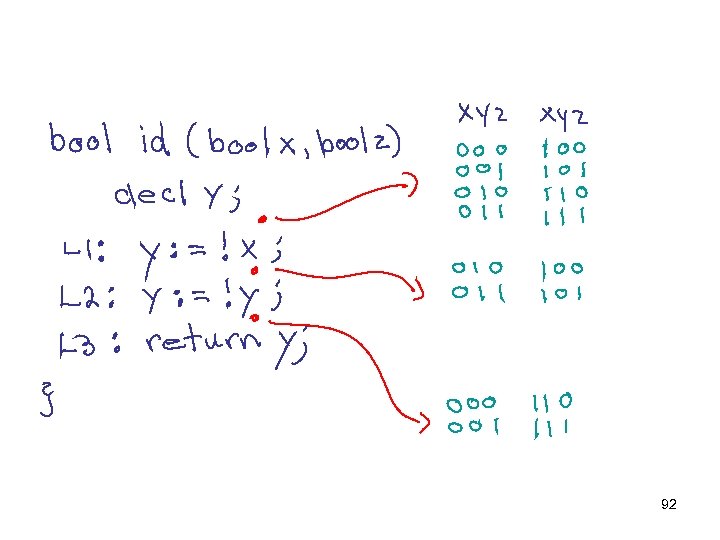 xyz xyz
bool id (bool x, bool z)
000 100
001 101
decl y;
010 110
011 111
L1: y:=!x;
010 100
L2: y:=!y;
011 101
L3: return y;
}
000 110
001 111
92